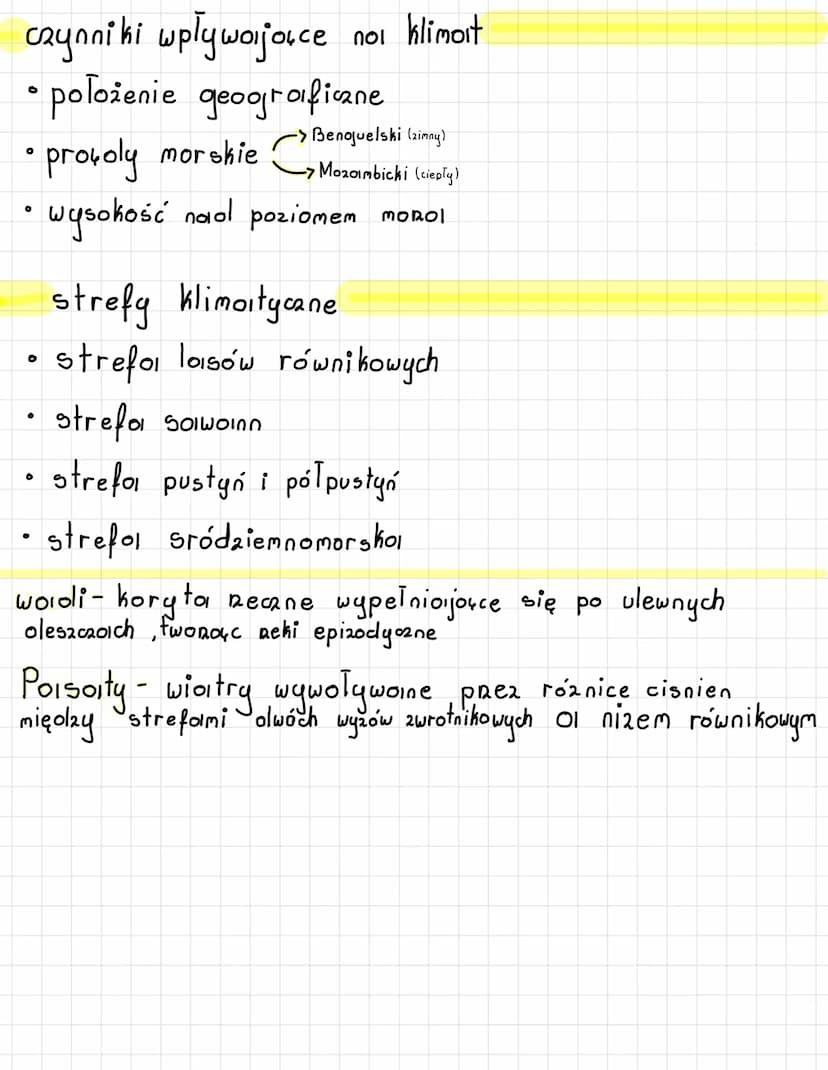 czynniki wpływające na klimat
• położenie geograficzne
• prądy morskie → Benguelski (zimny)
→ Mozambicki (ciepły)
• wysokość nad poziomem morza
strefy klimatyczne
• strefa lasów równikowych
• strefa sawann
• strefa pustyń i półpustyń
• strefa sródziemnomorska
wadi - koryta rzeczne wypełniające się po ulewnych
deszczach, tworząc rzeki epizodyczne
Pasaty - wiatry wywoływane przez róznice cisnien
między strefami dwóch wyzów zwrotnikowych a nizem równikowym